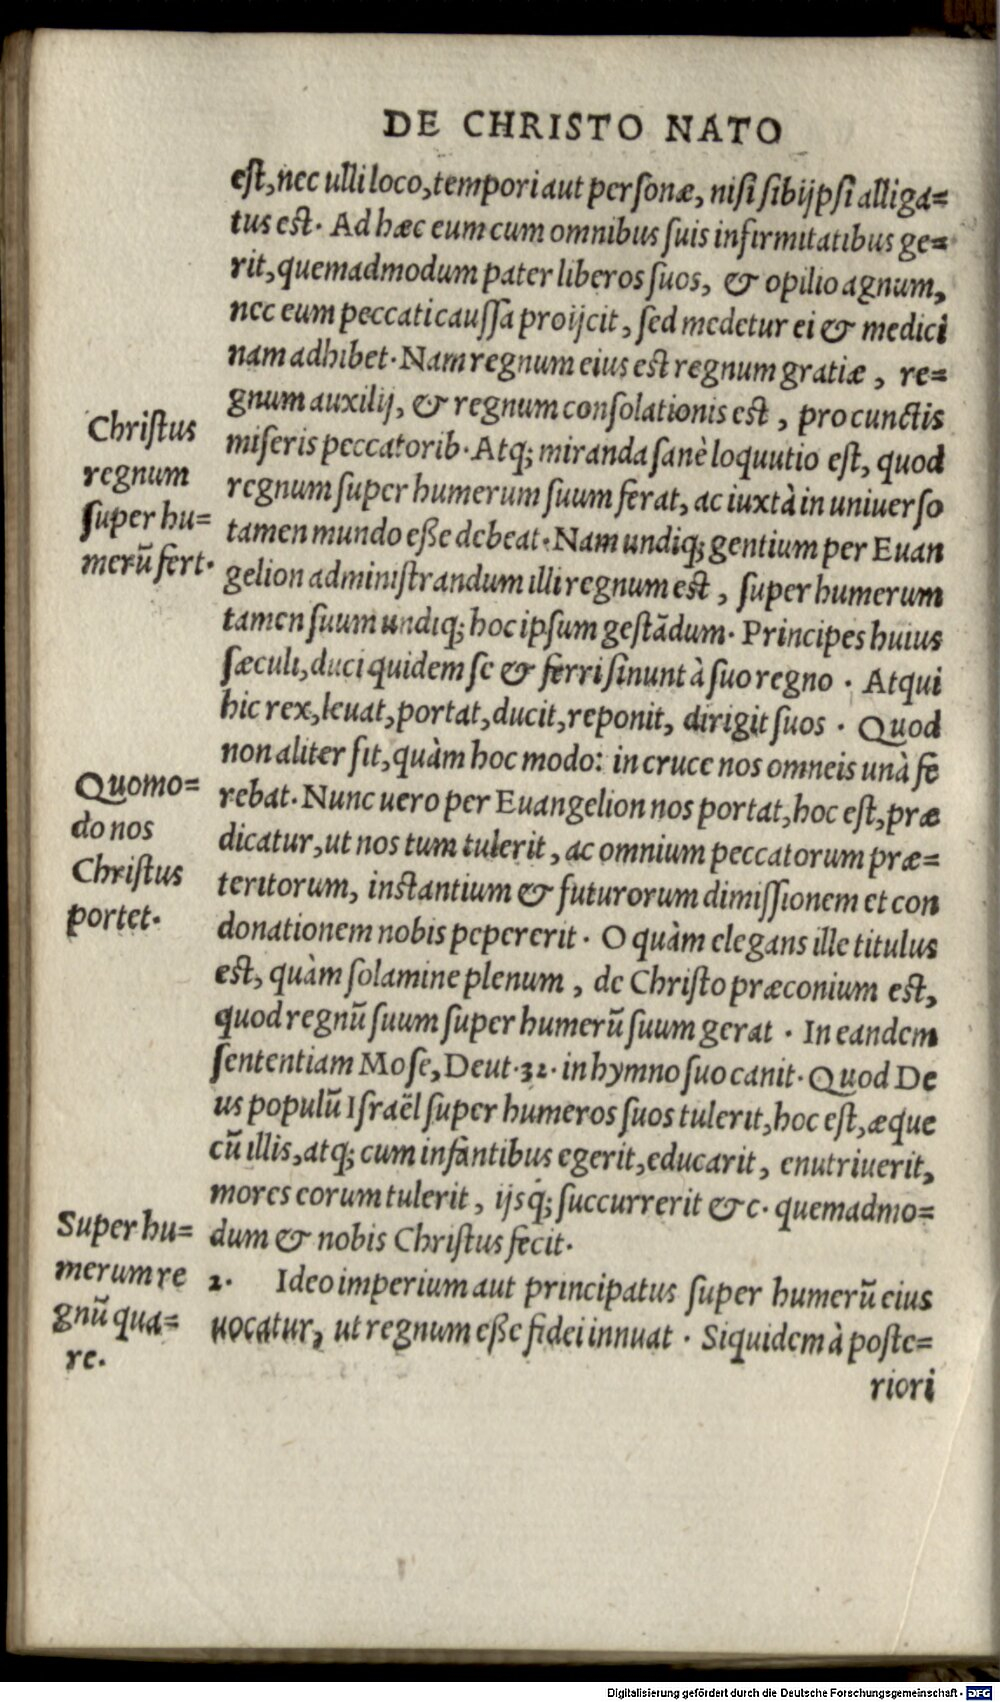 DE CHRISTO NATO
est, nec ulli loco, tempori aut personæ, nisi sibijpsi alliga=
tus est. Ad hæc eum cum omnibus suis infirmitatibus ge=
rit, quemadmodum pater liberos suos, & opilio agnum,
nec eum peccati caussa proijcit, sed medetur ei & medici
nam adhibet. Nam regnum eius est regnum gratiæ, re=
gnum auxilij, & regnum consolationis est, pro cunctis
miseris peccatorib. Atq; miranda sanè loquutio est, quod
regnum super humerum suum ferat, ac iuxtà in uniuerso
tamen mundo eße debeat. Nam undiq; gentium per Euan
gelion administrandum illi regnum est, super humerum
tamen suum undiq; hoc ipsum gestãdum. Principes huius
sæculi, duci quidem se & ferri sinunt à suo regno. Atqui
hic rex, leuat, portat, ducit, reponit, dirigit suos. Quod
non aliter fit, quàm hoc modo: in cruce nos omneis unà fe
rebat. Nunc uero per Euangelion nos portat, hoc est, præ
dicatur, ut nos tum tulerit, ac omnium peccatorum præ=
teritorum, instantium & futurorum dimissionem et con
donationem nobis pepererit. O quàm elegans ille titulus
est, quàm solamine plenum, de Christo præconium est,
quod regnũ suum super humerũ suum gerat. In eandem
sententiam Mose, Deut. 32. in hymno suo canit. Quod De
us populũ Israël super humeros suos tulerit, hoc est, æque
cũ illis, atq; cum infantibus egerit, educarit, enutriuerit,
mores eorum tulerit, ijsq́; succurrerit & c. quemadmo=
dum & nobis Christus fecit.
2. Ideo imperium aut principatus super humerũ eius
uocatur, ut regnum eße fidei innuat. Siquidem à poste=
riori
Christus
regnum
super hu=
merũ fert.
Quomo=
do nos
Christus
portet.
Super hu=
merum re
gnũ qua=
re.
Digitalisierung gefördert durch die Deutsche Forschungsgemeinschaft - DFG